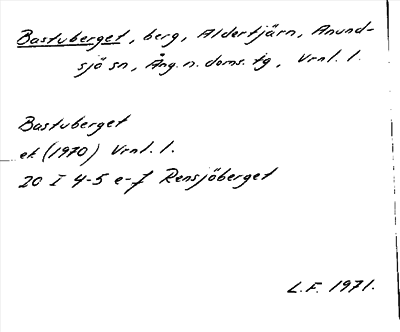 Bastuberget, berg, Aldertjärn, Anund-
sjö sn, Ång. n. doms. tg, Vrnl. l.
Bastuberget
ek (1970) Vrnl. l.
20 I 4-5 e-f Rensjöberget
L.F. 1971.